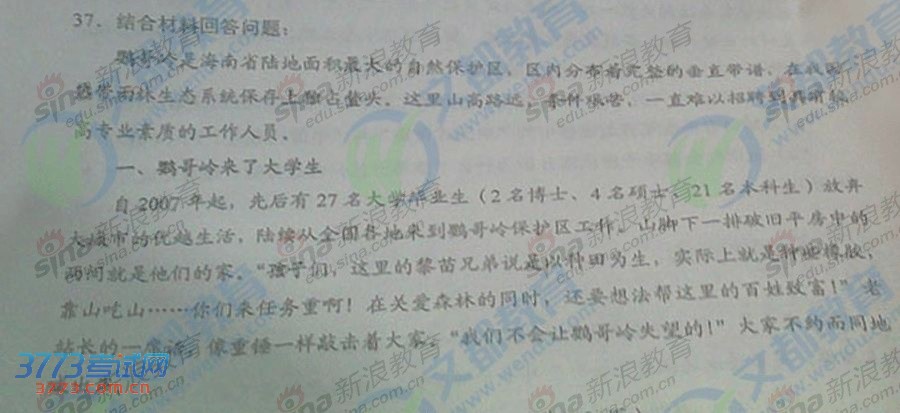 37、结合材料回答问题：
鹦哥岭是海南省陆地面积最大的自然保护区，区内分布着完整的垂直带谱，在我国
热带雨林生态系统保存上独占鳌头。这里山高路远，条件艰苦，一直难以招聘到具有较
高专业素质的工作人员。
一、鹦哥岭来了大学生
自 2007 年起，先后有 27 名大学毕业生（2 名博士、4 名硕士、21 名本科生）放弃
大城市的优越生活，陆续从全国各地来到鹦哥岭保护区工作。山脚下一排破旧平房中的
两间就是他们的家。“孩子们，这里的黎苗兄弟说是以种田为生，实际上就是种些橡胶，
靠山吃山……你们来任务重啊！在关爱森林的同时，还要想法帮这里的百姓致富！”老
站长的一席话，像重锤一样敲击着大家。“我们不会让鹦哥岭失望的！”大家不约而同地
3773考试网
www.3773.com.cn
sina新浪教育
edu.sina.com.cn
文都教育